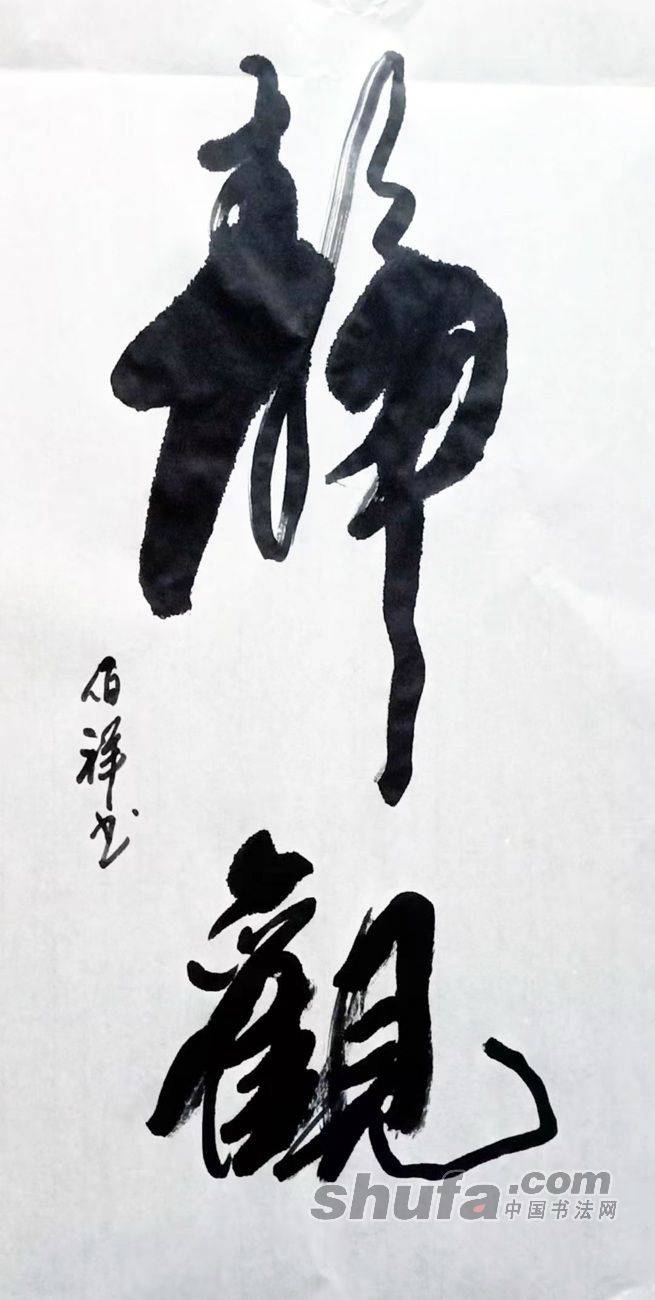 静觀
伯祥书
shufa.com
中国书法网